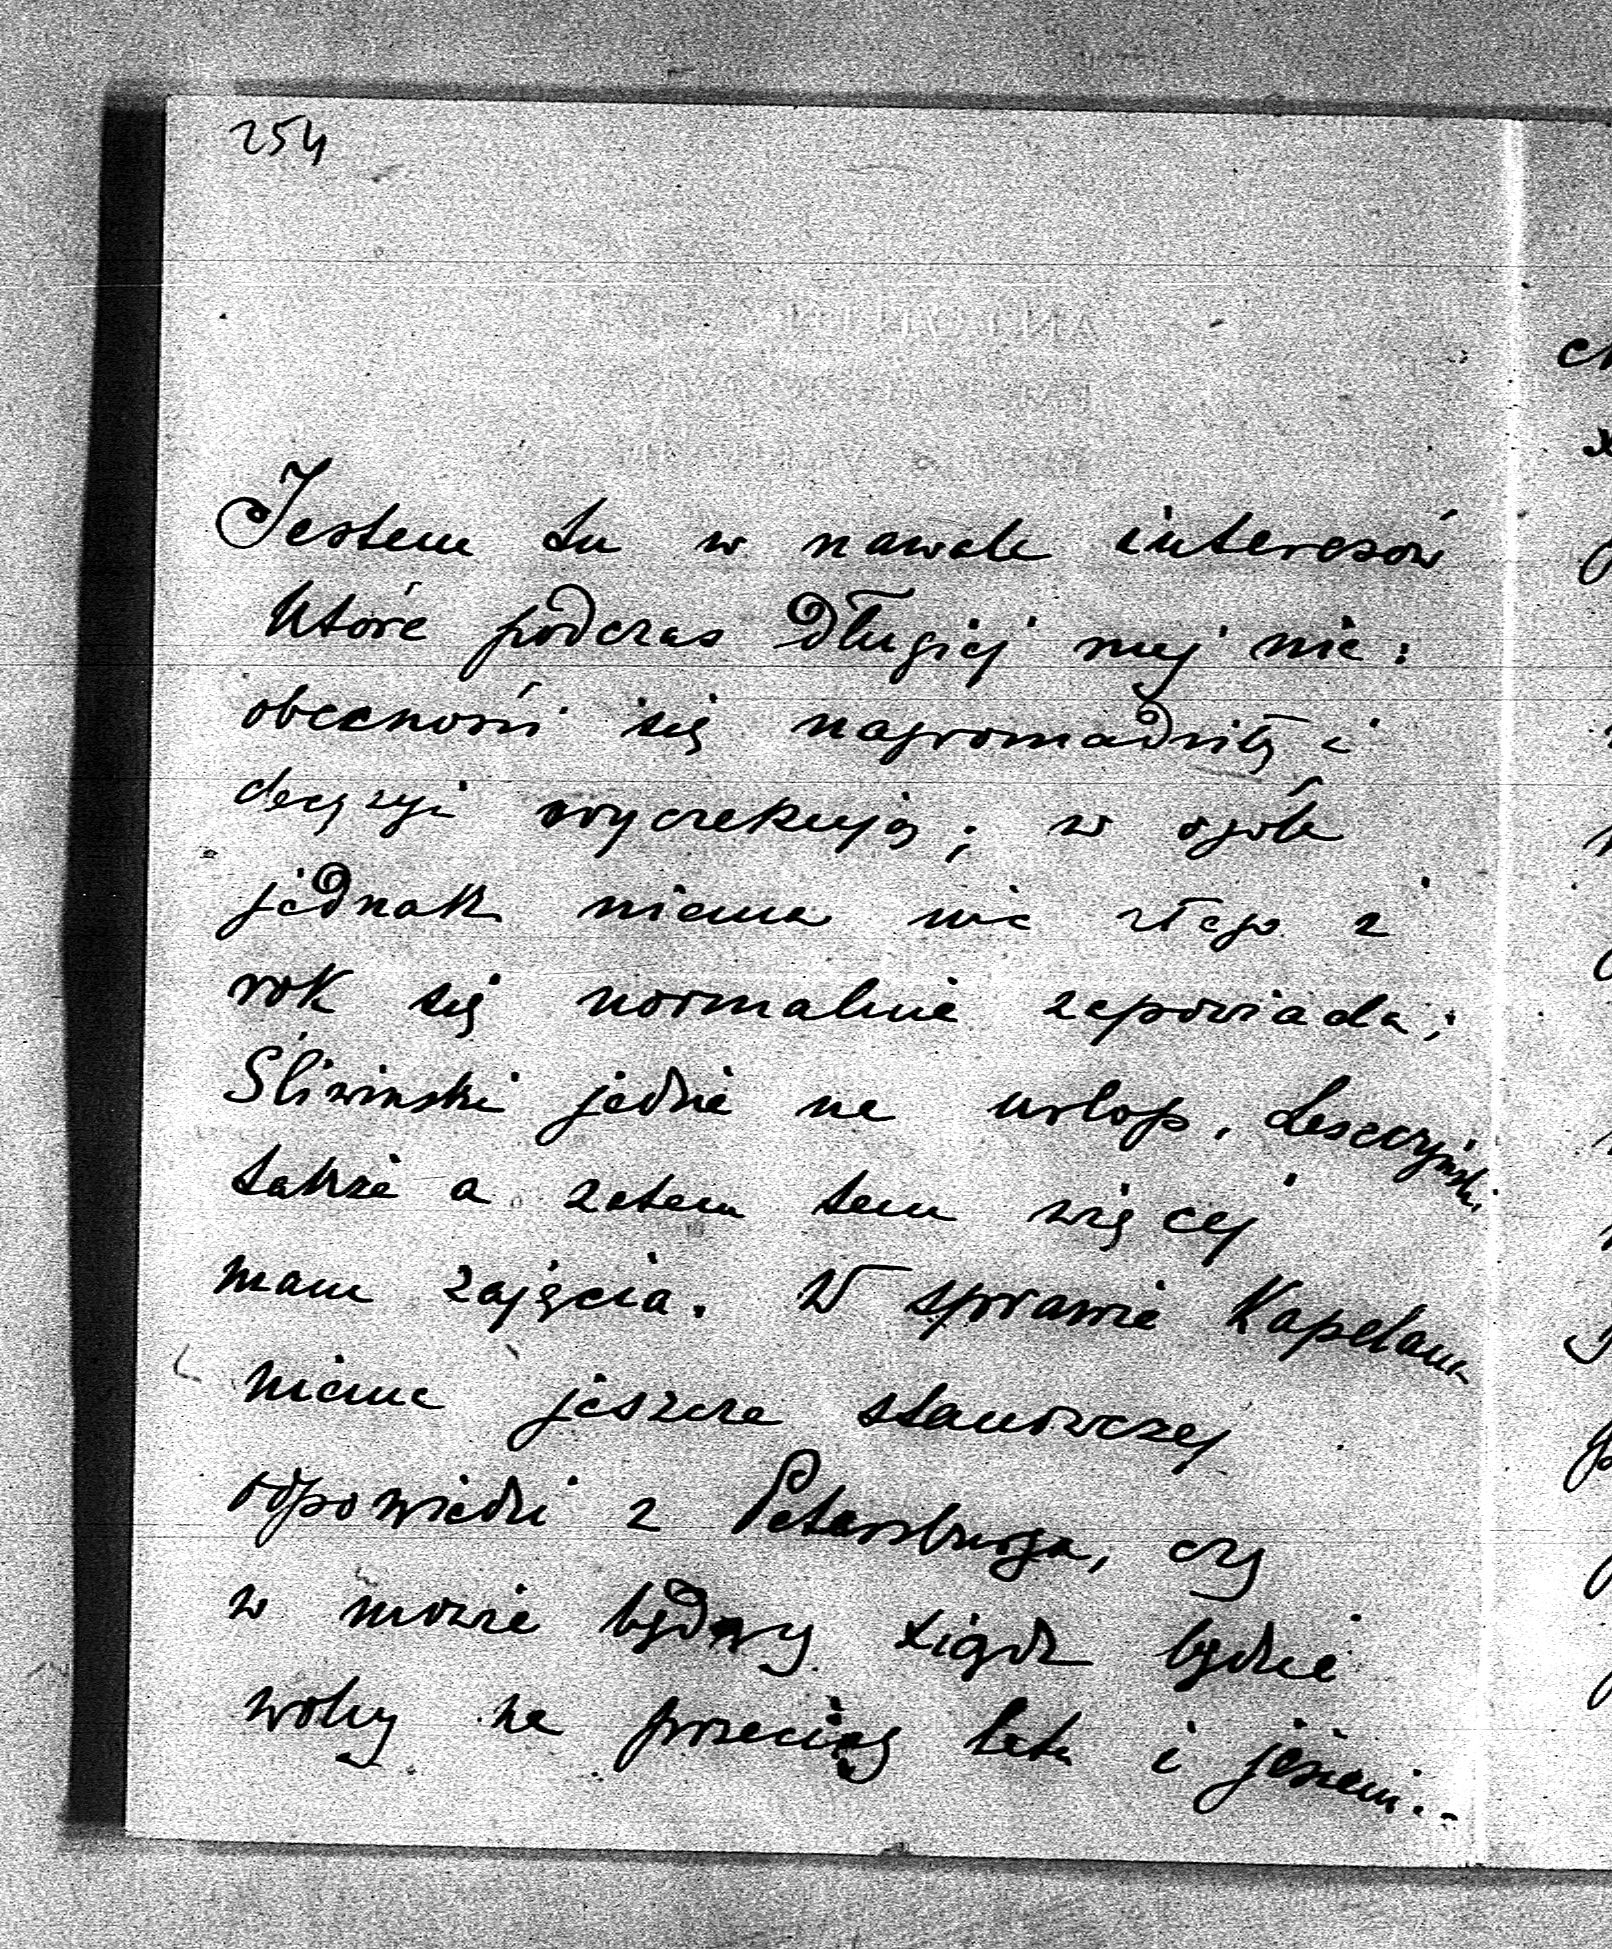 254
Jestem tu w nawale interesów
które podczas długiej mej nie:
obecności się nagromadziły i
decyzyi wyczekują; w ogóle
jednak niema nic złego a
rok się normalnie zapowiada;
Śliwinski jedzie na urlop, Leszczyński
także a zatem tem więcej
mam zajęcia. W sprawie Kapelana
niema jeszcze stanowczej
odpowiedzi z Petersburga, czy
w mowie będący xiądz będzie
wolny na przeciąg lata i jesieni..